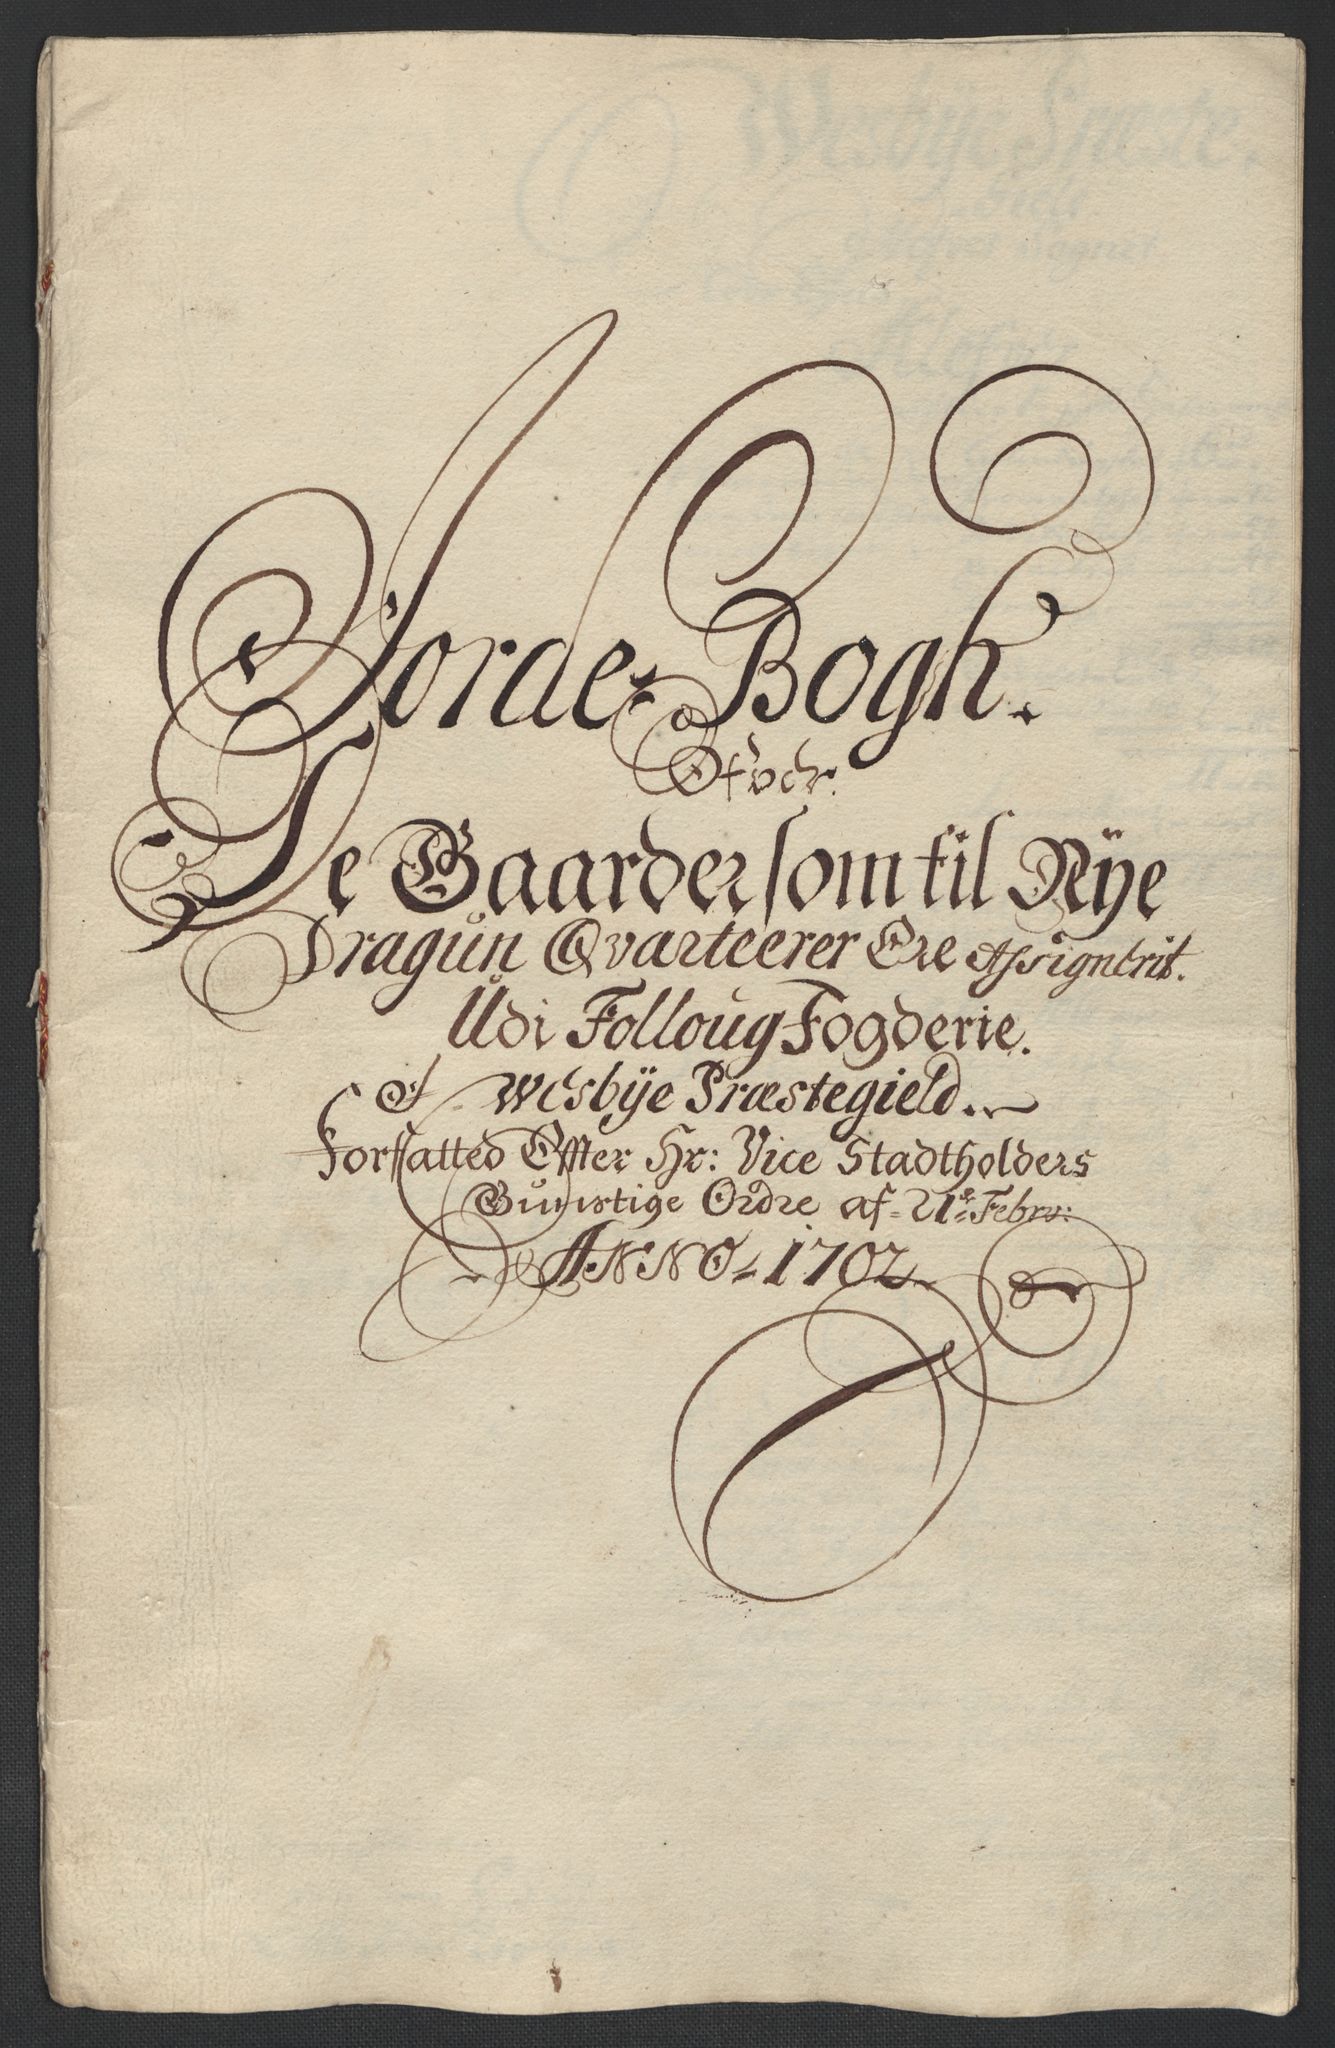 Jorde-Bogh.
Ofver
De Gaarder som til Nÿe
Dragun Qvarteerer Ere Assignerit.
Udi Folloug Fogderie.
Af Wesbÿe Præstegield.
forfatted Effter Hr: Vice Stadtholders
Gunstige Ordre af 21de Febru:
ANNO 1702